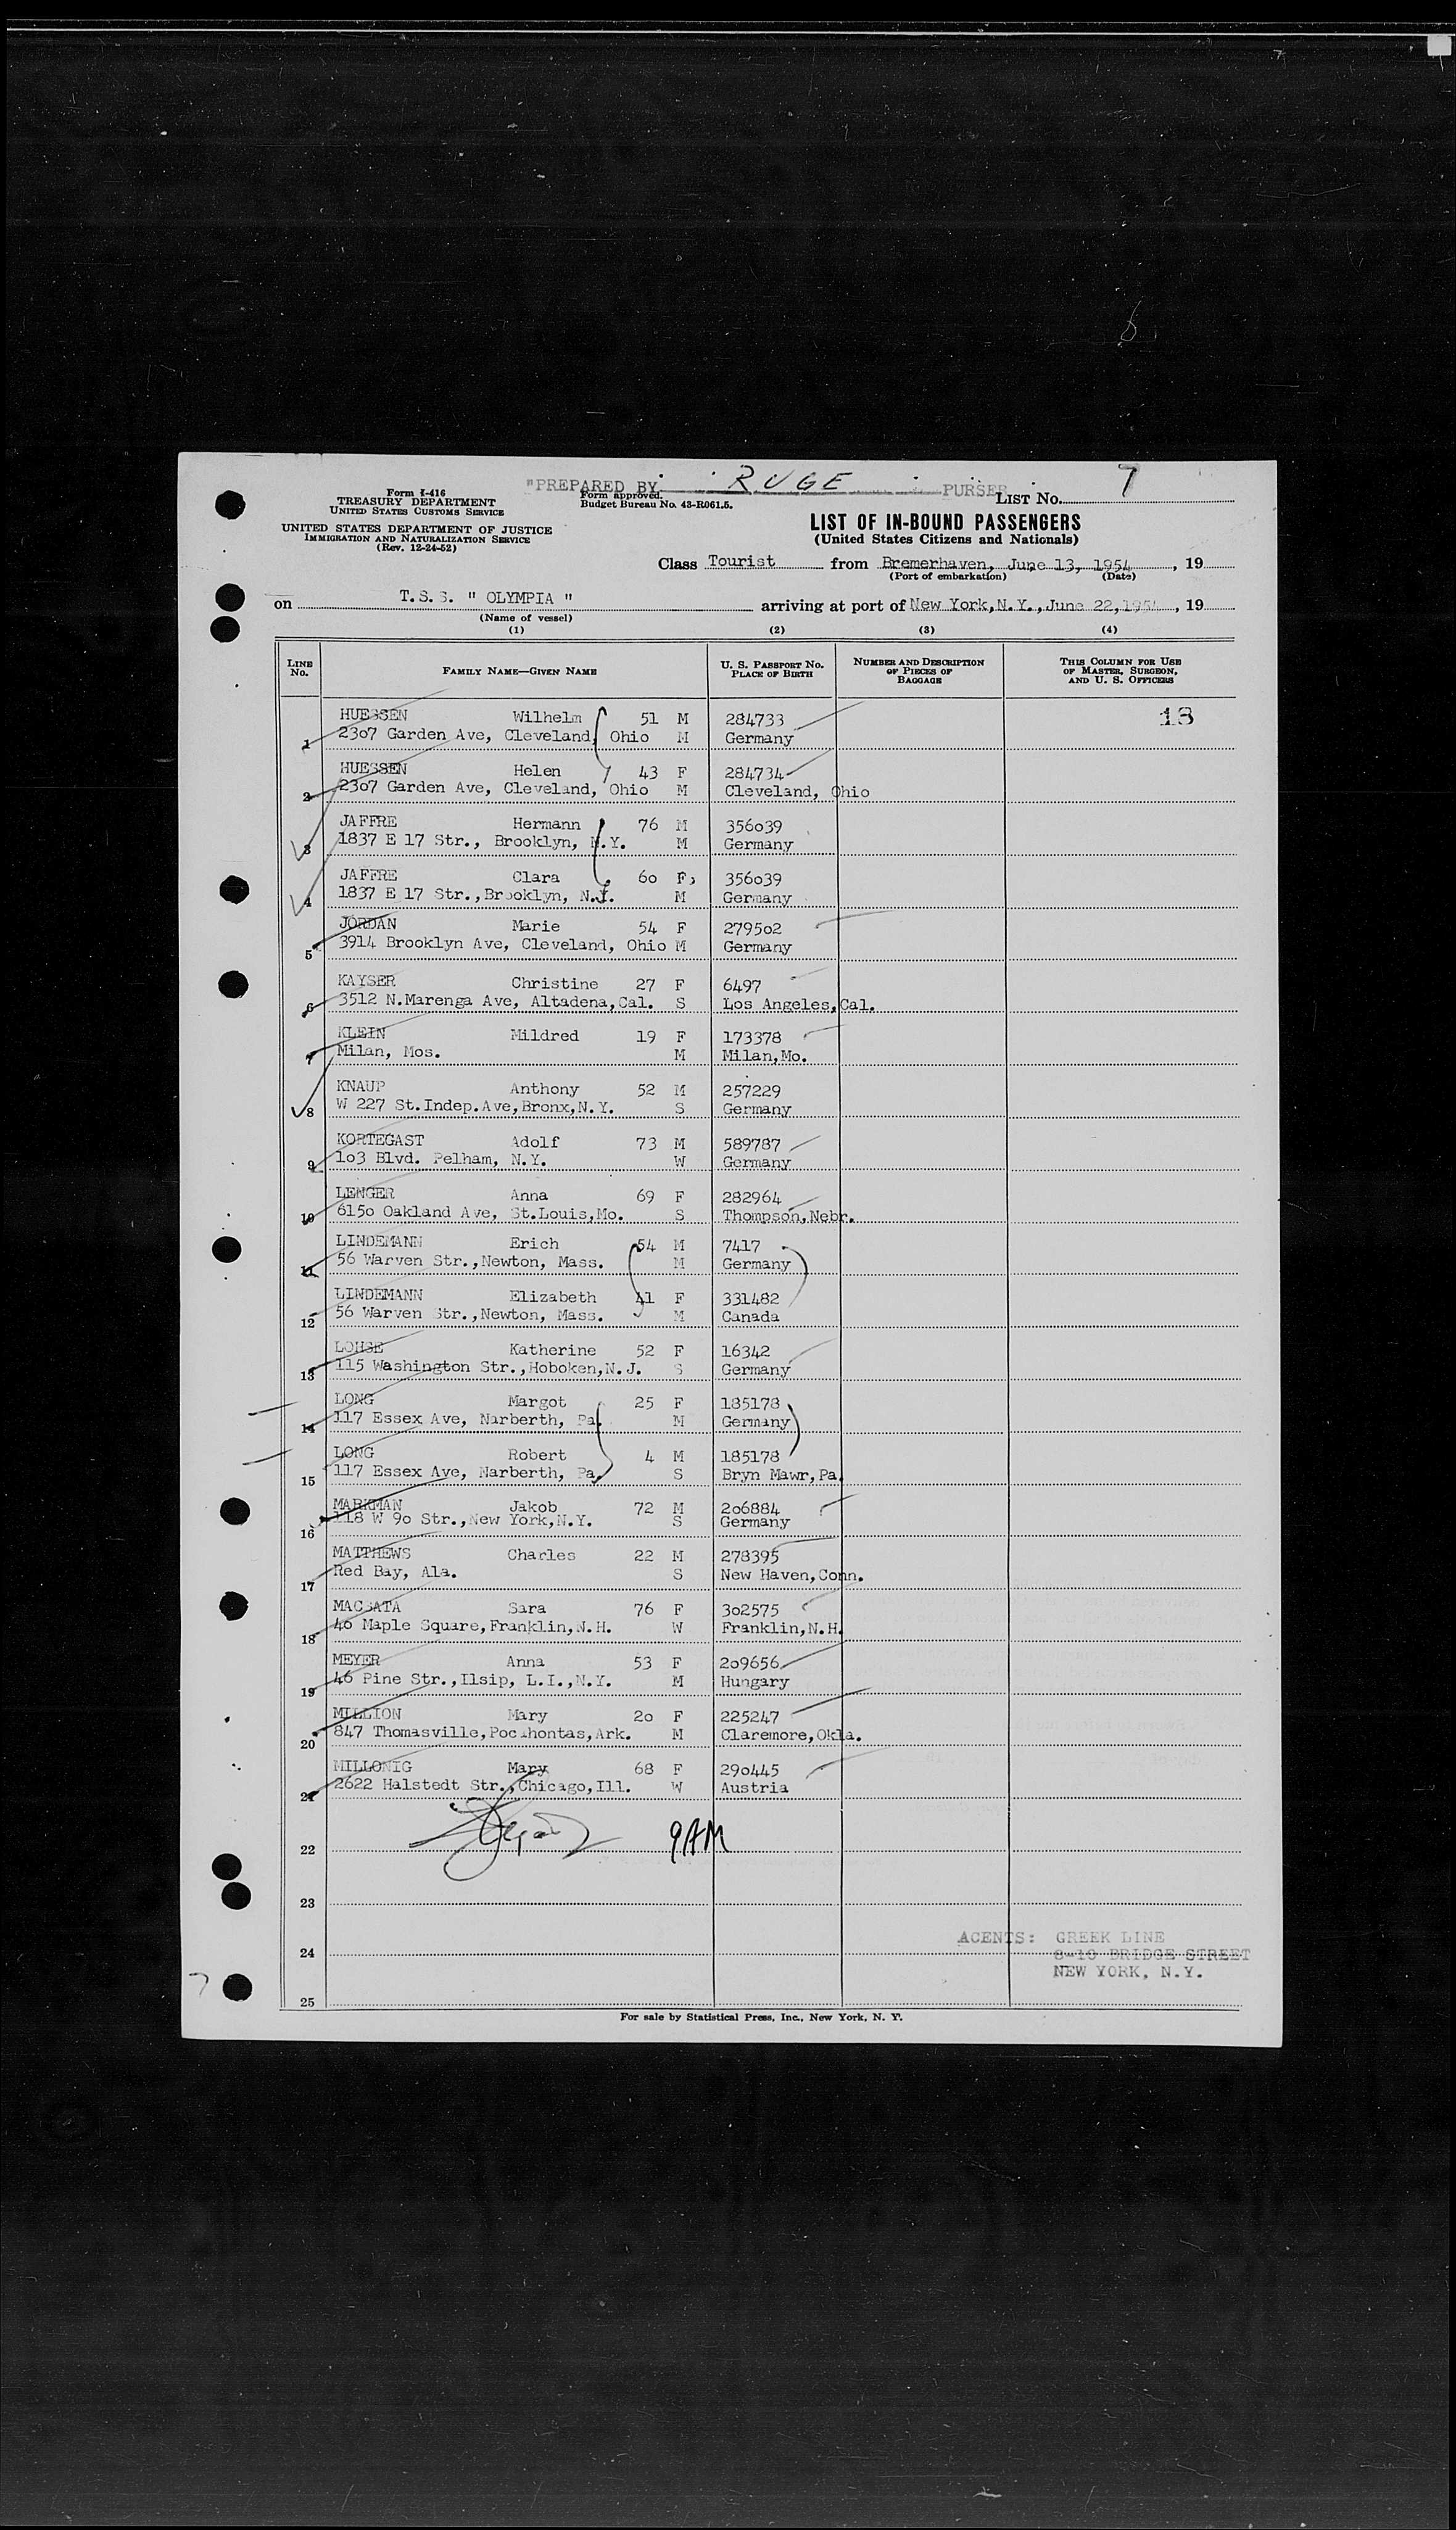 "PREPARED BY RUGE PURSER
Form I-416
TREASURY DEPARTMENT
UNITED STATES CUSTOMS SERVICE
Form approved.
Budget Bureau No. 43-R061.5.
LIST No. 7
UNITED STATES DEPARTMENT OF JUSTICE
IMMIGRATION AND NATURALIZATION SERVICE
(Rev. 12-24-52)
LIST OF IN-BOUND PASSENGERS
(United States Citizens and Nationals)
Class Tourist from Bremerhaven, June 13, 1954, 19
(Port of embarkation) (Date)
on T.S.S. " OLYMPIA " arriving at port of New York,N.Y.,June 22,1954, 19
(Name of vessel)
(1) (2) (3) (4)
LINE No. FAMILY NAME—GIVEN NAME U. S. PASSPORT NO. PLACE OF BIRTH NUMBER AND DESCRIPTION OF PIECES OF BAGGAGE THIS COLUMN FOR USE OF MASTER, SURGEON, AND U. S. OFFICERS
HUESSEN Wilhelm 51 M 284733 13
1 2307 Garden Ave, Cleveland, Ohio M Germany
HUESSEN Helen 43 F 284734
2 2307 Garden Ave, Cleveland, Ohio M Cleveland, Ohio
JAFFRE Hermann 76 M 356039
3 1837 E 17 Str., Brooklyn, N.Y. M Germany
JAFFRE Clara 60 F, 356039
4 1837 E 17 Str.,Brooklyn, N.Y. M Germany
JORDAN Marie 54 F 279502
5 3914 Brooklyn Ave, Cleveland, Ohio M Germany
KAYSER Christine 27 F 6497
6 3512 N.Marenga Ave, Altadena,Cal. S Los Angeles,Cal.
KLEIN Mildred 19 F 173378
7 Milan, Mos. M Milan,Mo.
KNAUP Anthony 52 M 257229
8 W 227 St.Indep.Ave,Bronx,N.Y. S Germany
KORTEGAST Adolf 73 M 589787
9 103 Blvd. Pelham, N.Y. W Germany
LENGER Anna 69 F 282964
10 6150 Oakland Ave, St.Louis,Mo. S Thompson,Nebr.
LINDEMANN Erich 54 M 7417
11 56 Warven Str.,Newton, Mass. M Germany
LINDEMANN Elizabeth 41 F 331482
12 56 Warven Str.,Newton, Mass. M Canada
LOHSE Katherine 52 F 16342
13 115 Washington Str.,Hoboken,N.J. S Germany
LONG Margot 25 F 185178
14 117 Essex Ave, Narberth, Pa. M Germany
LONG Robert 4 M 185178
15 117 Essex Ave, Narberth, Pa. S Bryn Mawr,Pa.
MARKMAN Jakob 72 M 206884
16 118 W 90 Str.,New York,N.Y. S Germany
MATTHEWS Charles 22 M 278395
17 Red Bay, Ala. S New Haven,Conn.
MACSATA Sara 76 F 302575
18 40 Maple Square,Franklin,N.H. W Franklin,N.H.
MEYER Anna 53 F 209656
19 46 Pine Str.,Ilsip, L.I.,N.Y. M Hungary
MILLION Mary 20 F 225247
20 847 Thomasville,Pocahontas,Ark. M Claremore,Okla.
MILLONIG Mary 68 F 290445
21 2622 Halstedt Str.,Chicago,Ill. W Austria
22 9AM
23
AGENTS: GREEK LINE
24 8-10 BRIDGE STREET
NEW YORK, N.Y.
7
25
For sale by Statistical Press, Inc., New York, N. Y.